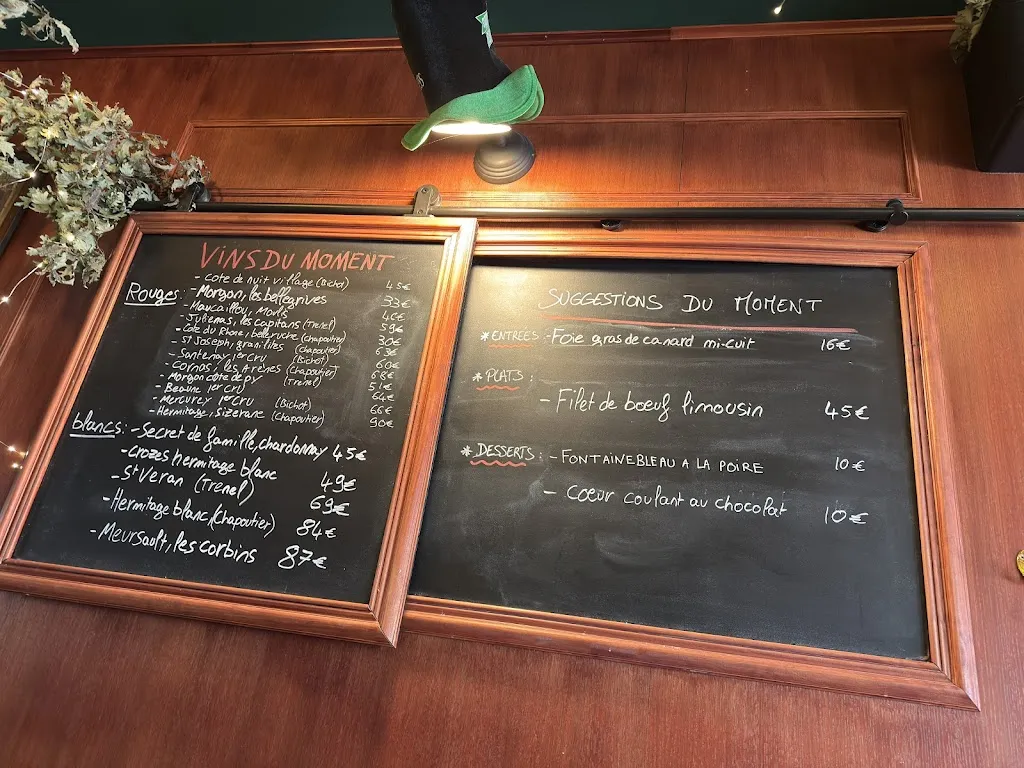 VINS DU MOMENT
Rouges: - Cote de nuit village (Bichot) 45€
- Morgon, les bellegrives 33€
- Maucaillou, Moulis
- Julienas, les Capitans (Trenel) 59€
- Cote du Rhone, belleruche (Chapoutier) 30€
- St Joseph, granilites (chapoutier) 63€
- Santenay 1er cru (Bichot) 60€
- Cornas, les Arènes (Chapoutier) 68€
- Morgon côte de py (Trenel) 51€
- Beaune 1er cru 64€
- Mercurey 1er cru (Bichot) 66€
- Hermitage, sizerane (Chapoutier) 90€
blancs: - Secret de famille, chardonnay 45€
- crozes hermitage blanc 49€
- St Veran (Trenel) 69€
- Hermitage blanc, (Chapoutier) 84€
- Meursault, les corbins 87€
SUGGESTIONS DU MOMENT
* ENTREES: - Foie gras de canard mi-cuit 16€
* PLATS:
- Filet de boeuf limousin 45€
* DESSERTS: - FONTAINEBLEAU A LA POIRE 10€
- Coeur coulant au chocolat 10€